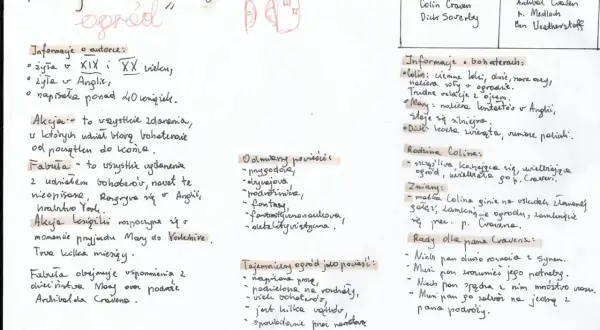 ogród
Informacje o autorce:
• żyła w XIX i XX wieku,
• żyła w Anglii,
• napisała ponad 40 książek.
Akcja - to wszystkie zdarzenia,
w których udział biorą bohaterowie
od początku do końca.
Fabuła - to wszystkie wydarzenia
z udziałem bohaterów, nawet te
nieopisane. Rozgrywa się w Anglii,
hrabstwo York.
Akcja książki rozpoczyna się w
momencie przyjazdu Mary do Yorkshire.
Trwa kilka miesięcy.
Fabuła obejmuje wspomnienia z
dzieciństwa Mary oraz podróż
Archibalda Cravena.
Odmiany powieści:
- przygodowa,
- obyczajowa
- podróżnicza,
- fantasy,
- fantastycznonaukowa,
- detektywistyczna.
Tajemniczy ogród jako powieść:
- napisana prozą,
- podzielona na rozdziały,
- wielu bohaterów,
- jest kilka wątków,
- opowiadanie przez narratora
Colin Craven
Dick Sowerby
Archibald Craven
p. Medlock
Ben Weatherstaff
Informacje o bohaterach:
• Colin: ciemne loki, duże, oczy,
Trudne relacje z ojcem.
• Mary: w Anglii,
staje się silniejsza.
• Dick: kocha zwierzęta,
Rodzina Colina:
- szczęśliwa, kochająca się, uwielbiająca
ogród, p. Craven.
Zmiany:
- matka Colina ginie na skutek złamanej
gałęzi, zamknięcie ogrodu, zamknięcie
się p. Cravena.
Rady dla pana Cravena:
- Niech pan dużo rozmawia z synem.
- Musi pan zrozumieć jego potrzeby.
- Niech pan spędza z nim mnóstwo czasu.
- Musi pan go zabrać na jedną z
pana podróży.